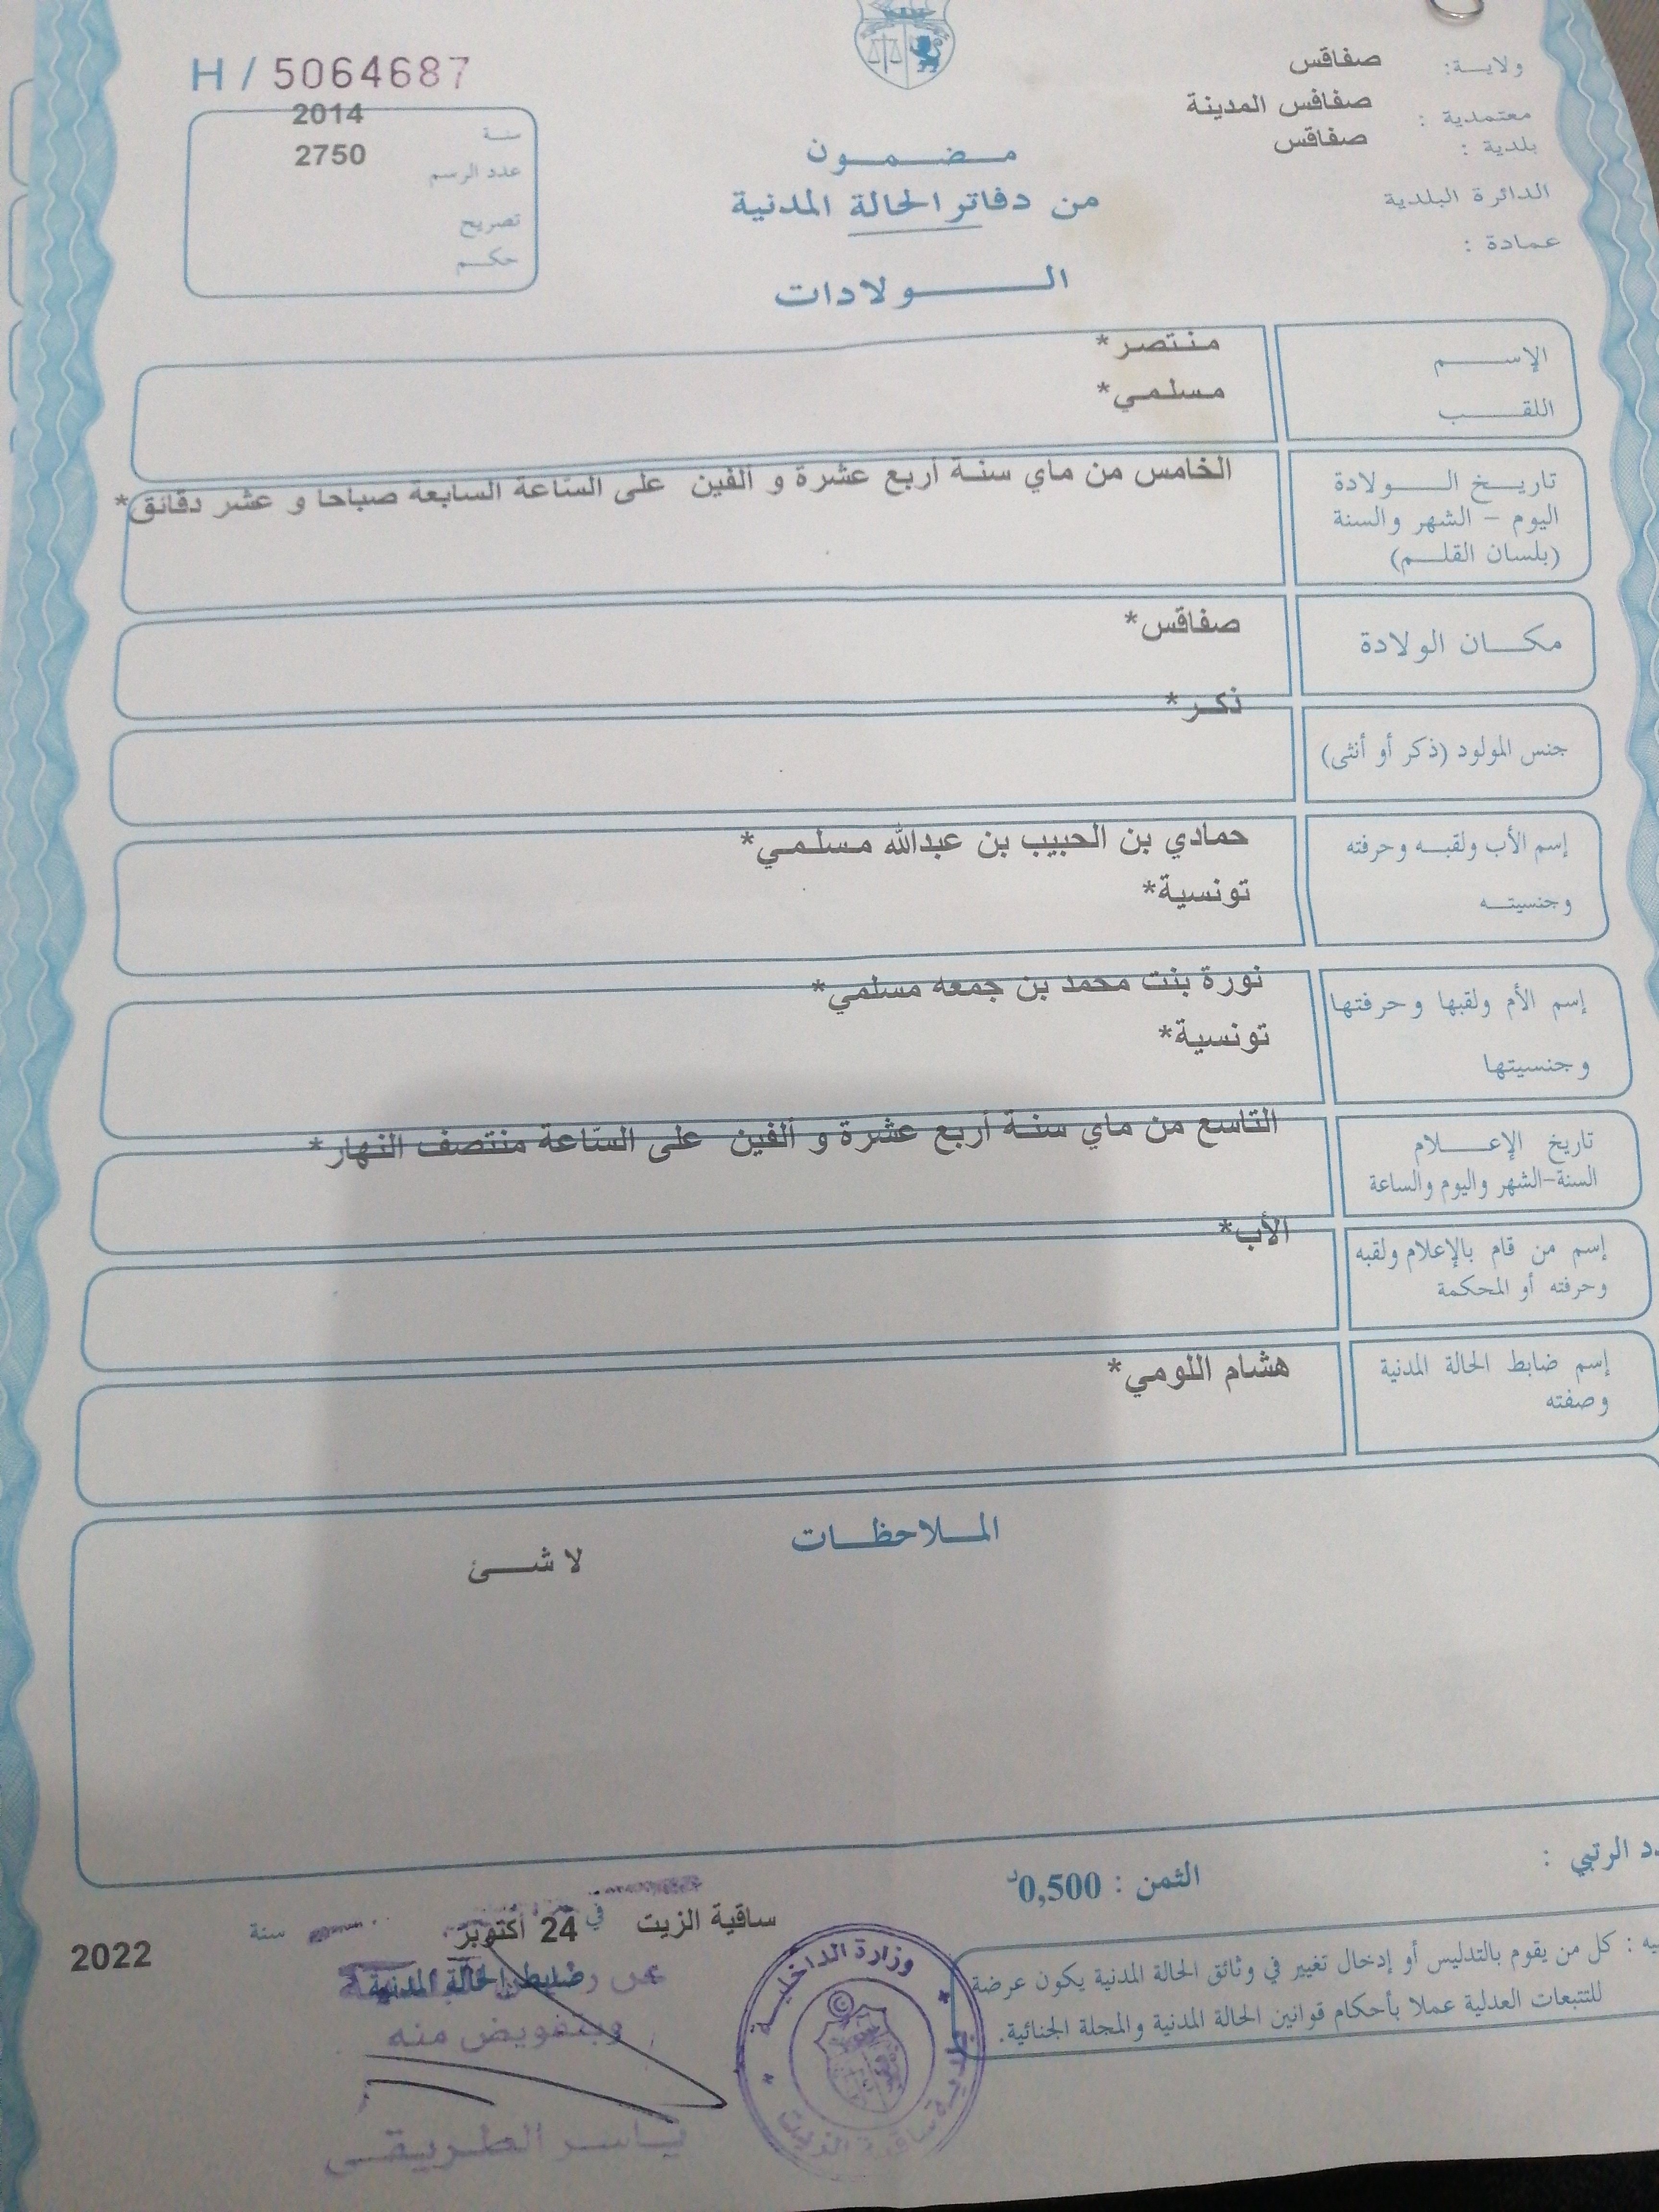 H / 5064687
ولاية: صفاقس
معتمدية : صفاقس المدينة
بلدية : صفاقس
الدائرة البلدية
عمادة :
سنة 2014
عدد الرسم 2750
تصريح
حكم
مضمون
من دفاتر الحالة المدنية
الولادات
الإسم منتصر*
اللقب مسلمي*
تاريخ الولادة
اليوم - الشهر والسنة
(بلسان القلم)
الخامس من ماي سنة أربع عشرة و ألفين على الساعة السابعة صباحا و عشر دقائق*
مكان الولادة صفاقس*
جنس المولود (ذكر أو أنثى) ذكر*
إسم الأب ولقبه وحرفته حمادي بن الحبيب بن عبدالله مسلمي*
وجنسيته تونسية*
إسم الأم ولقبها وحرفتها نورة بنت محمد بن جمعه مسلمي*
وجنسيتها تونسية*
تاريخ الإعلام
السنة-الشهر واليوم والساعة
التاسع من ماي سنة أربع عشرة و ألفين على الساعة منتصف النهار*
إسم من قام بالإعلام ولقبه
وحرفته أو المحكمة
الأب*
إسم ضابط الحالة المدنية
وصفته
هشام اللومي*
الملاحظات
لا شئ
الرتبي :
الثمن : 0,500د
ساقية الزيت في 24 أكتوبر سنة 2022
ضابط الحالة المدنية
وبتفويض منه
ياسر الطريقي
وزارة الداخلية
بلدية ساقية الزيت
: كل من يقوم بالتدليس أو إدخال تغيير في وثائق الحالة المدنية يكون عرضة
للتتبعات العدلية عملا بأحكام قوانين الحالة المدنية والمجلة الجنائية.